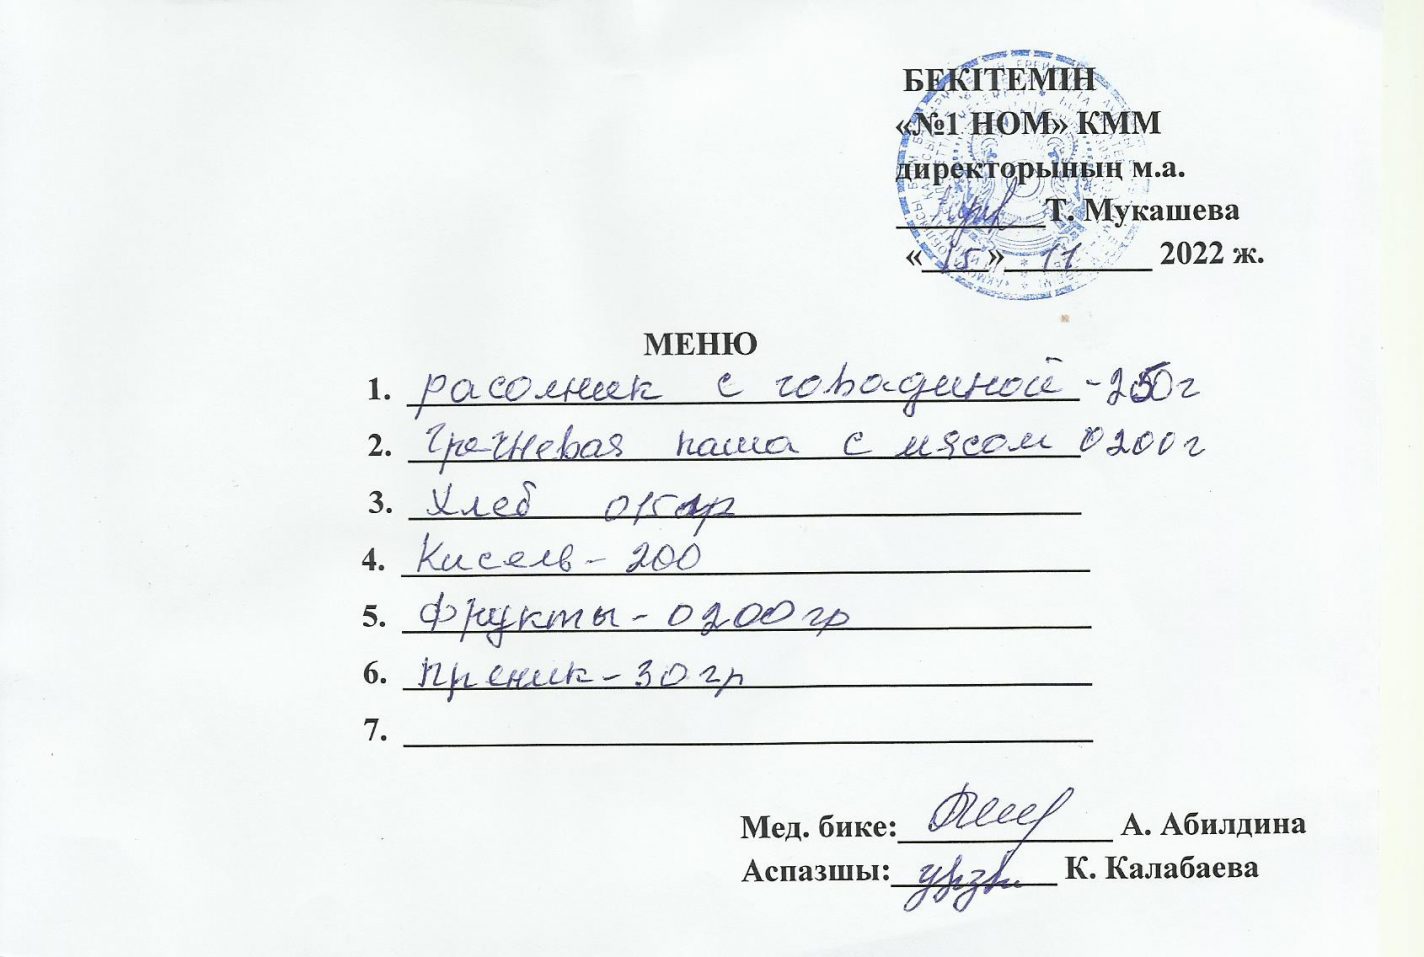 БЕКІТЕМІН
«№1 НОМ» КММ
директорының м.а.
Т. Мукашева
«15» 11 2022 ж.
МЕНЮ
1. расолник с говадиной - 250г
2. Гречневая каша с мясом 0200г
3. Хлеб
4. Кисель - 200
5. Фрукты - 0200 гр
6. Преник - 30 гр
7.
Мед. бике: А. Абилдина
Аспазшы: К. Калабаева